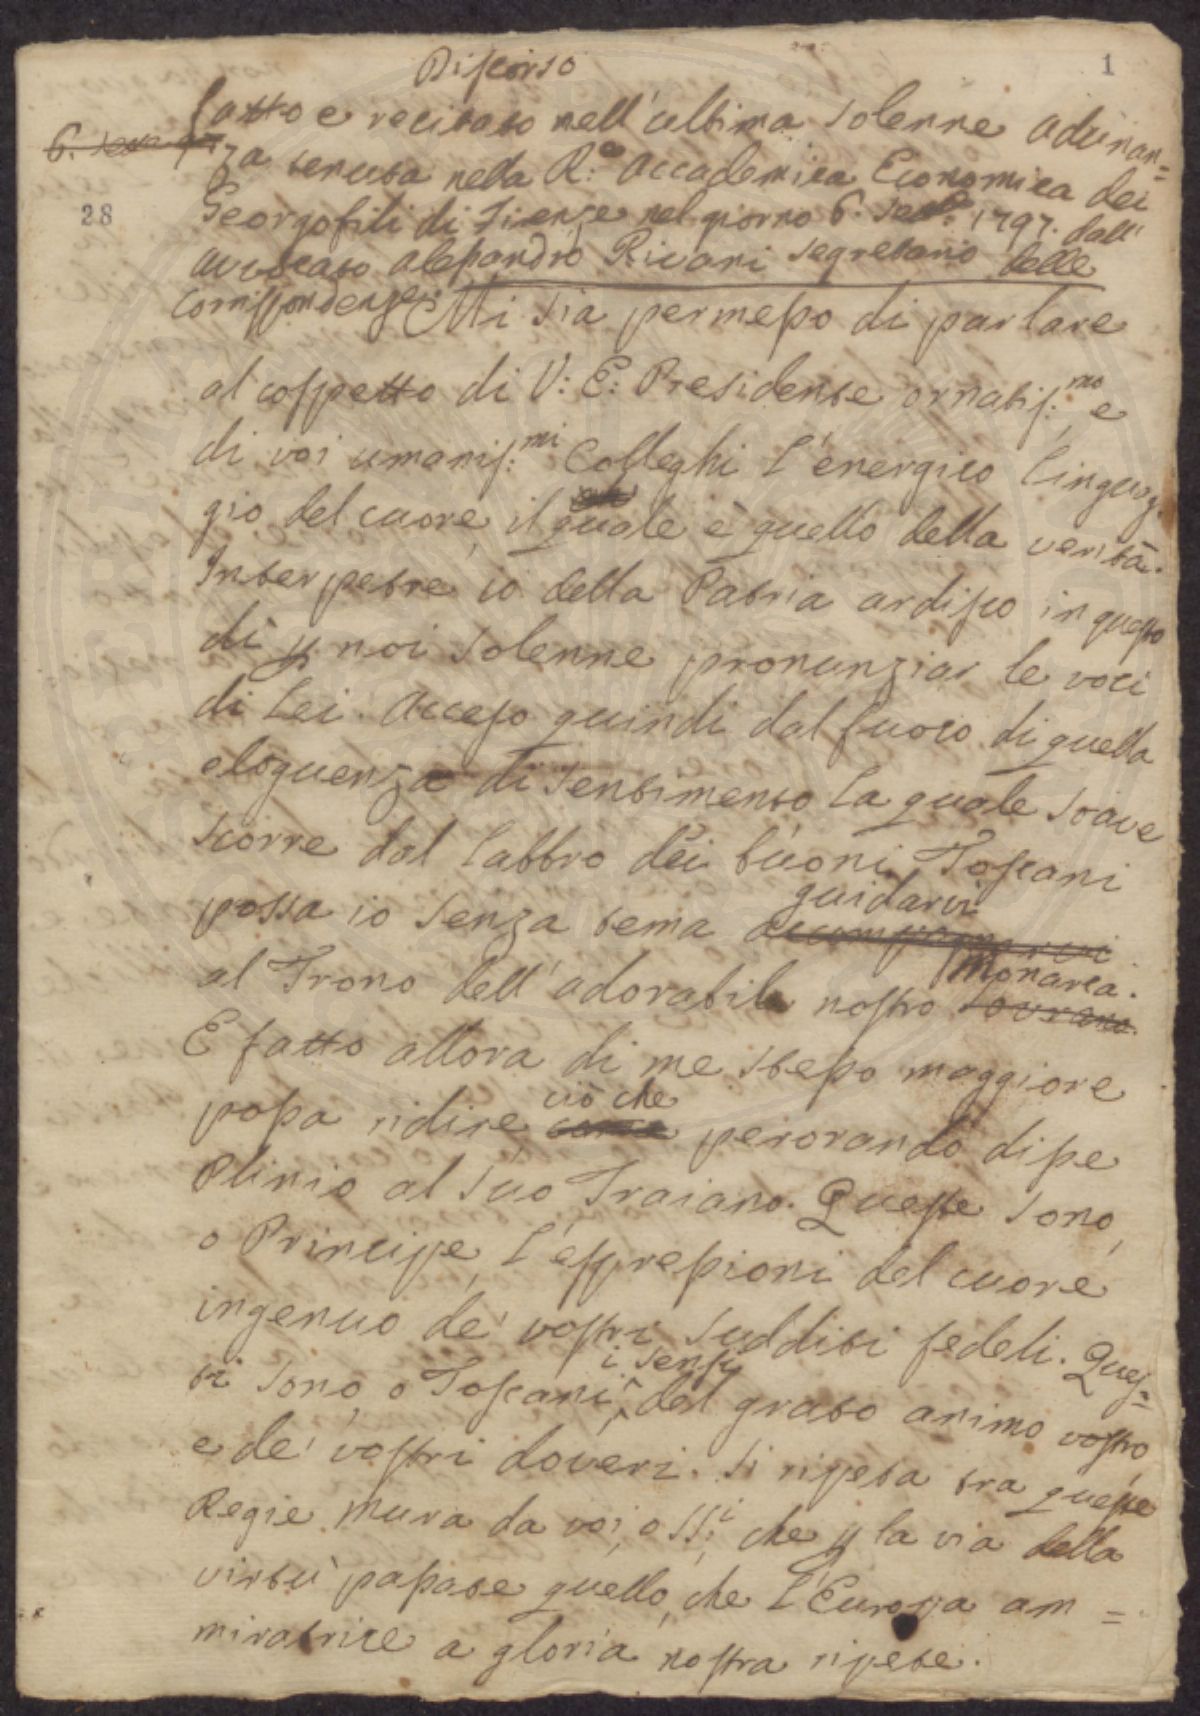 1
Discorso
fatto e recitato nell'ultima solenne adunan=
6. Sett.
za tenuta nella R.e Accademica Economica dei
28
Georgofili di Firenze nel giorno 6. Sett.e 1797. dall'
Avvocato Alessandro Rivani Segretario delle
Corrispondenze. Mi sia permesso di parlare
al cospetto di V: E: Presidente ornatis:mo e
di voi umanis:mi Colleghi l'energico linguag=
gio del cuore, il quale è quello della verità.
Interpetre io della Patria ardisco in questo
dì p noi solenne pronunziar le voci
di Lei. Acceso quindi dal fuoco di quella
eloquenza di sentimento la quale soave
scorre dal labbro dei buoni Toscani
guidarvi
possa io senza tema accompagnarvi
Monarca.
al Trono dell'adorabile nostro Sovrano.
E fatto allora di me stesso maggiore
ciò che
possa ridire come perorando disse
Plinio al suo Traiano. Queste sono,
o Principe, l'espressioni del cuore
ingenuo de' vostri sudditi fedeli. Ques=
i sensi
ti sono, o Toscani, del grato animo vostro
e de' vostri doveri. Si ripeta tra queste
Regie Mura da voi, o SS:i, che p la via della
virtù passate quello, che l'Europa am=
miratrice a gloria nostra ripete.